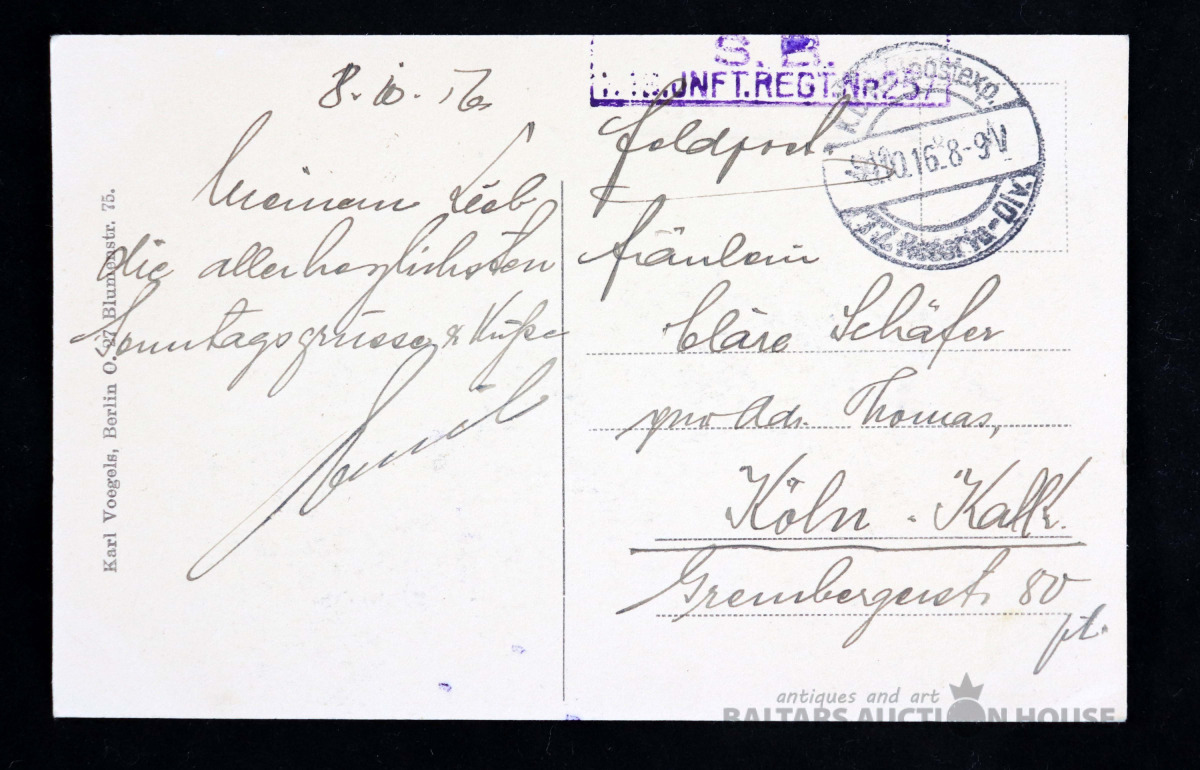 8. 10. 16
Meinem Lieb
die allerherzlichsten
Sonntagsgrüsse & Küsse
Emil
Karl Voegels, Berlin O. 27 Blumenstr. 75.
S. B.
INFT.REGT.NR257
10.16. 8-9V
Reserve-Div.
Feldpost.
Fräulein
Cläre Schäfer
pro Adr. Thomas,
Köln - Kalk.
Grembergerstr 80
pt.
antiques and art
BALTARS AUCTION HOUSE